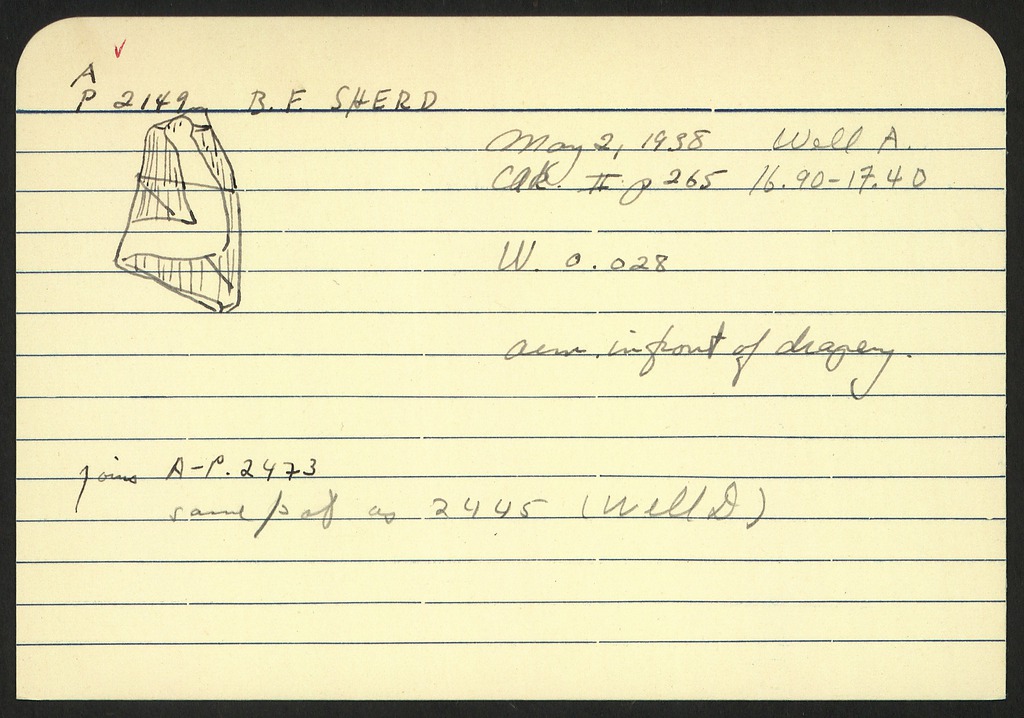 A
P 2149 B.F. SHERD
May 2, 1938 Well A.
II p 265 16.90-17.40
W. 0.028
arm in front of drapery.
joins A-P. 2473
same pot as 2445 (Well D)